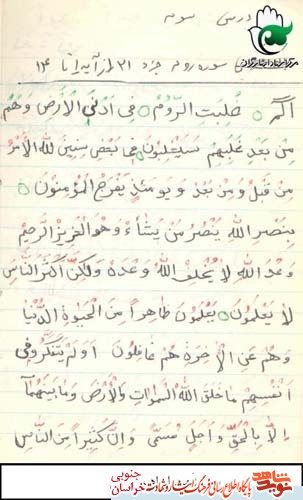 درس سوم
سوره روم جزء ۲۱ از آیه ۱ تا ۱۴
الم غلبت الرّوم فی ادنی الأرض وهُم
من بَعد غَلَبِهم سَیَغلِبُون فی بَضع سِنینَ لله الأمر
مِن قَبل وَمِن بَعد وَ یَومَئذٍ یَفرَح المُؤمِنُون
بِنَصرِ الله یَنصُر مَن یَشاء وَهُوَ العَزیز الرَّحیم
وَعدَ الله لا یُخلِف الله وَعدَهُ وَلکِنَّ اکثَرَ النّاس
لا یَعلَمُون یَعلَمُونَ ظاهِراً مِنَ الحَیوةِ الدُّنیا
وَهُم عَنِ الاخِرَةِ هُم غافِلُون اَوَلَم یَتَفَکَّروُا فی
اَنفُسِهِم ما خَلَقَ اللهُ السَّمواتِ وَالأرضَ وَما بَینَهُمآ
اِلّا بِالحَقِّ وَاَجَلٍ مُسَمّیً وَاِنَّ کَثیراً مِنَ النّاس
نوید شاهد
پایگاه اطلاع رسانی فرهنگ ایثار و شهادت
خراسان جنوبی